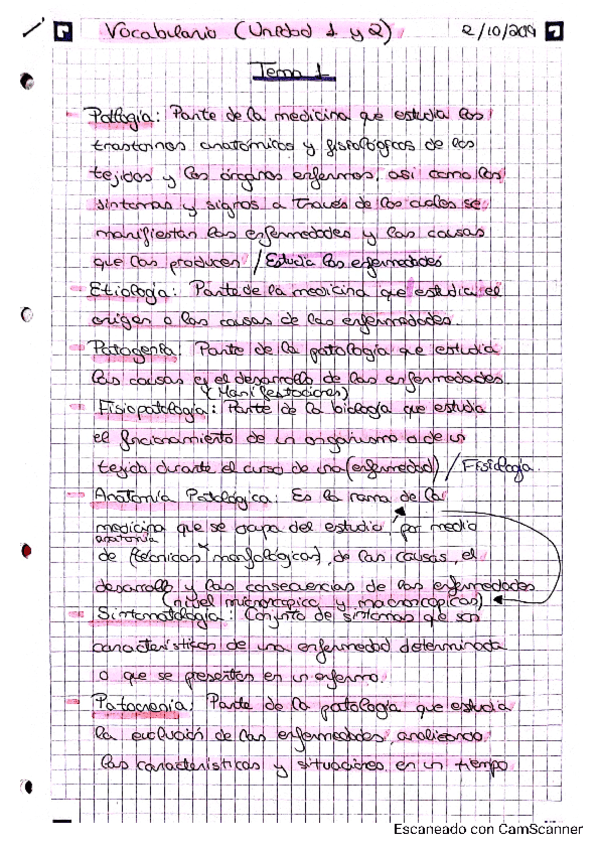 Vocabulario (Unidad 1 y 2) 2/10/2019
Tema 1
- Patología: Parte de la medicina que estudia los
trastornos anatómicos y fisiológicos de los
tejidos y los órganos enfermos, así como los
síntomas y signos a través de los cuales se
manifiestan las enfermedades y las causas
que las producen / Estudia las enfermedades
- Etiología: Parte de la medicina que estudia el
origen o las causas de las enfermedades.
- Patogenia: Parte de la patología que estudia
las causas y el desarrollo de las enfermedades.
(Manifestaciones)
- Fisiopatología: Parte de la biología que estudia
el funcionamiento de un organismo o de un
tejido durante el curso de una (enfermedad) / Fisiología.
- Anatomía Patológica: Es la rama de la
medicina que se ocupa del estudio, por medio
anatomía
de (técnicas morfológicas), de las causas, el
desarrollo y las consecuencias de las enfermedades
(nivel microscópico y macroscópicos)
- Sintomatología: Conjunto de síntomas que son
característicos de una enfermedad determinada
o que se presentan en un enfermo.
- Patocronia: Parte de la patología que estudia
la evolución de las enfermedades, analizando
las características y situaciones en un tiempo
Escaneado con CamScanner